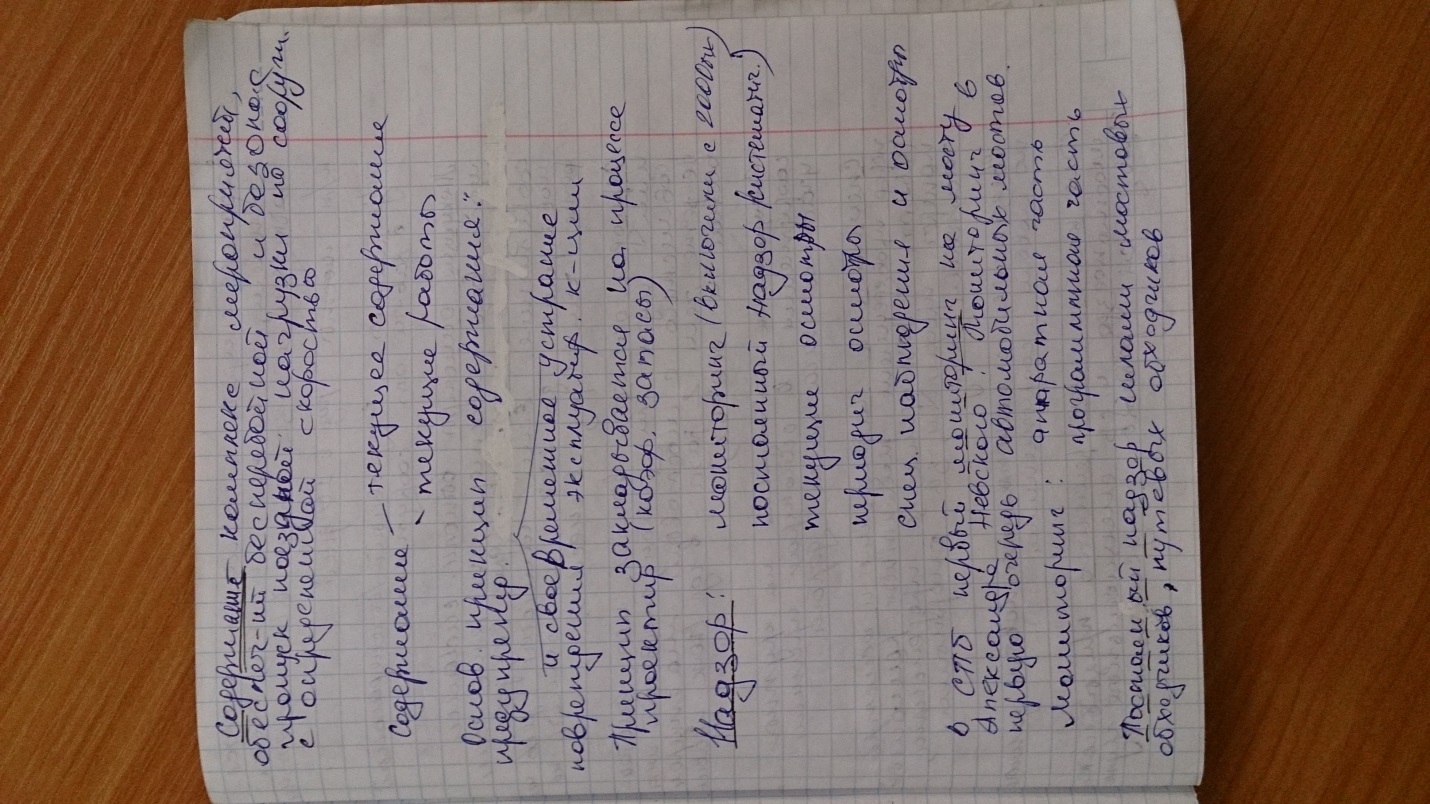 Содержание комплекс мероприятий,
обеспеч-ий бесперебойной и безопас
пропуск поездной нагрузки по сооруж.
с определенной скоростью
Содержание — текущее содержание
- текущие работы
Основ. принцип содержания:
предупрежд.
и своевременное устрание
повреждения эксплуатир. к-ции
Принцип закладывается на процессе
проектир (коэф. запасы)
Надзор: мониторинг (включили с 2000гг)
постоянный надзор (системат.)
текущие осмотры
периодич осмотры
спец. наблюдения и осмотры
в СПб первый мониторинг на мосту
Александра Невского. Мониторинг в
первую очередь автомобильных мостов.
Мониторинг: аппаратная часть
программная часть
Постоянный надзор силами мостовых
обходчиков, путевых обходчиков